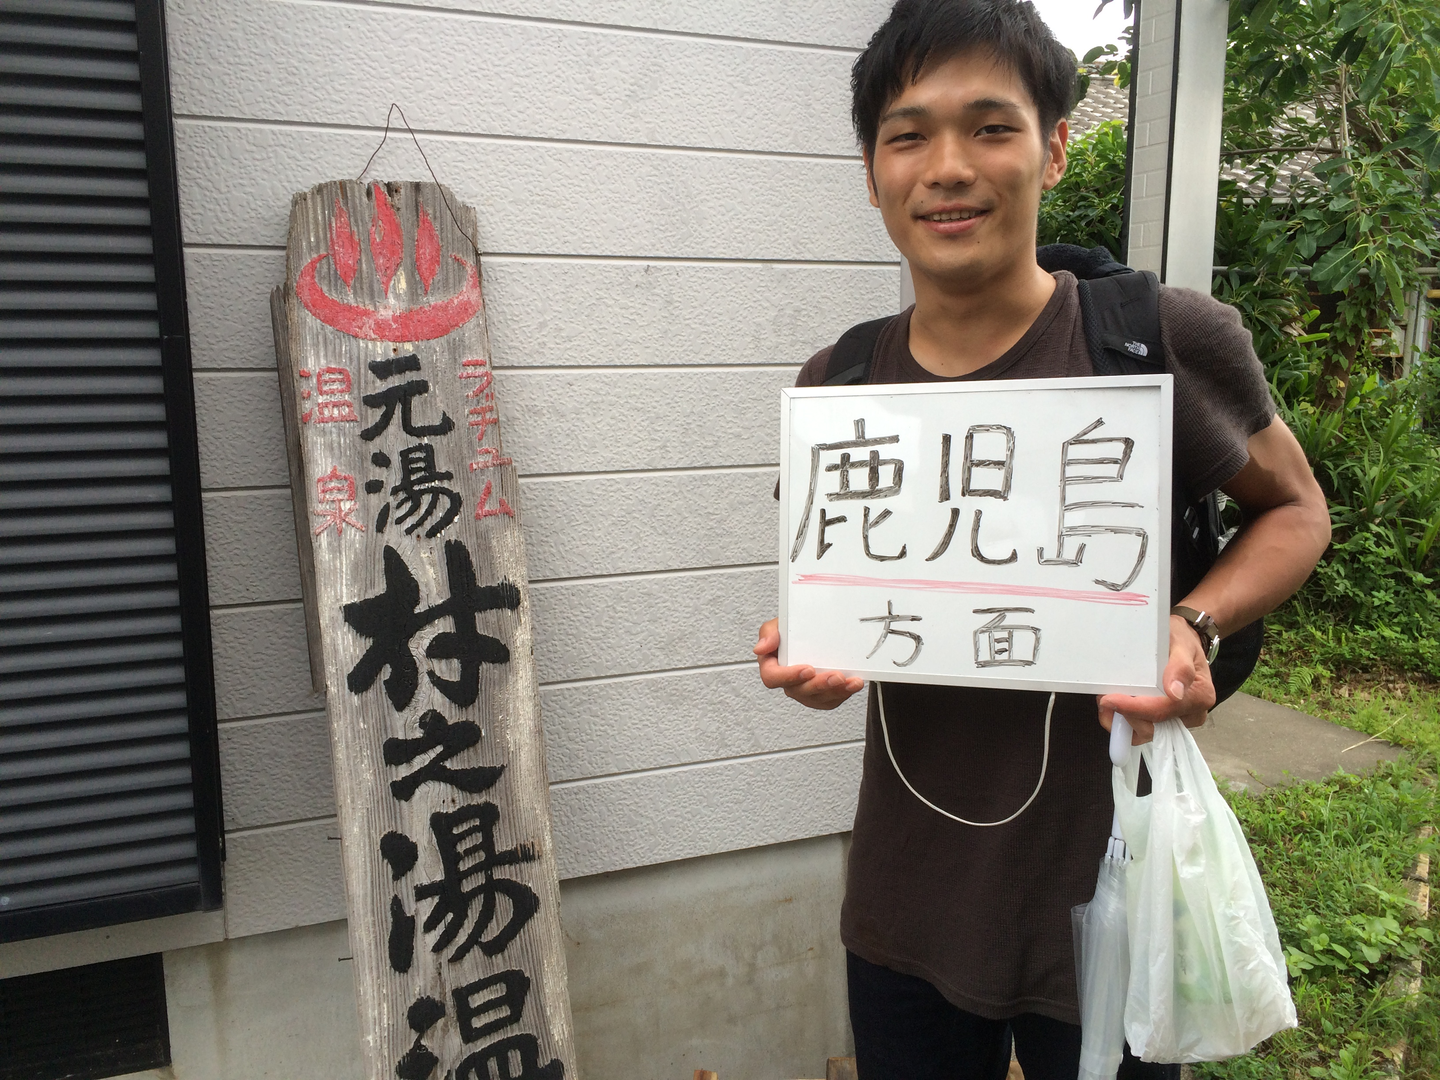 ラヂウム
温泉
元湯
村之湯温
鹿児島
方面
THE NORTH FACE